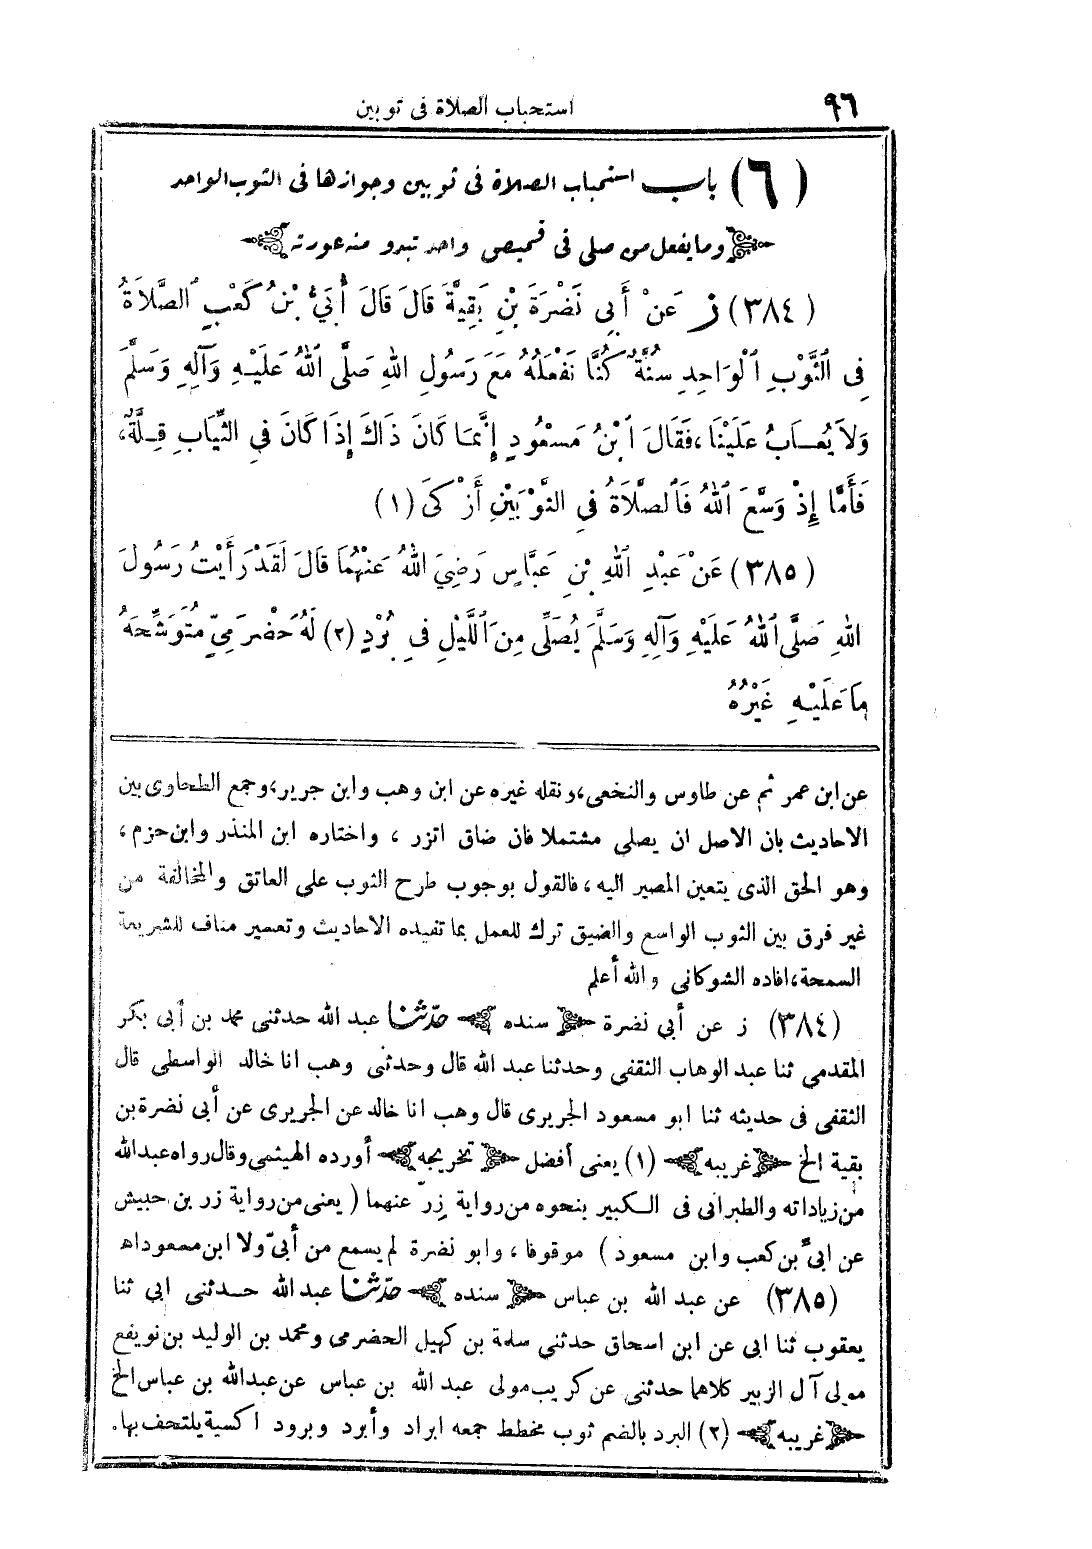 ٩٦
استحباب الصلاة فى ثوبين
(٦) باب استحباب الصلاة فى ثوبين وجوازها فى الثوب الواحد
وما يفعل من صلى فى قميص واحد تبدو منه عورته
(٣٨٤) ز عَنْ أَبِى نَضْرَةَ بْنِ بَقِيَّةَ قَالَ قَالَ أُبَيُّ بْنُ كَعْبٍ الصَّلَاةُ
فِى الثَّوْبِ الْوَاحِدِ سُنَّةٌ كُنَّا نَفْعَلُهُ مَعَ رَسُولِ اللهِ صَلَّى اللهُ عَلَيْهِ وَآلِهِ وَسَلَّمَ
وَلاَ يُعَابُ عَلَيْنَا، فَقَالَ ابْنُ مَسْعُودٍ إِنَّمَا كَانَ ذَاكَ إِذَا كَانَ فِي الثِّيَابِ قِلَّةٌ،
فَأَمَّا إِذْ وَسَّعَ اللهُ فَالصَّلَاةُ فِي الثَّوْبَيْنِ أَزْكَى (١)
(٣٨٥) عَنْ عَبْدِ اللهِ بْنِ عَبَّاسٍ رَضِيَ اللهُ عَنْهُمَا قَالَ لَقَدْ رَأَيْتُ رَسُولَ
اللهِ صَلَّى اللهُ عَلَيْهِ وَآلِهِ وَسَلَّمَ يُصَلِّى مِنَ اللَّيْلِ فِى بُرْدٍ (٢) لَهُ حَضْرَمِيٍّ مُتَوَشِّحَهُ
مَا عَلَيْهِ غَيْرُهُ
عن ابن عمر ثم عن طاوس والنخعى، ونقله غيره عن ابن وهب وابن جرير، وجمع الطحاوى بين
الاحاديث بان الاصل ان يصلى مشتملا فان ضاق اتزر ، واختاره ابن المنذر وابن حزم ،
وهو الحق الذى يتعين المصير اليه ، فالقول بوجوب طرح الثوب على العاتق والمخالفة من
غير فرق بين الثوب الواسع والضيق ترك للعمل بما تفيده الاحاديث وتعسير مناف للشريعة
السمحة، افاده الشوكانى والله أعلم
(٣٨٤) ز عن أبي نضرة سنده حدثنا عبد الله حدثنى محمد بن أبى بكر
المقدمي ثنا عبد الوهاب الثقفى وحدثنا عبد الله قال وحدثنى وهب انا خالد الواسطى قال
الثقفى فى حديثه ثنا ابو مسعود الجريرى قال وهب انا خالد عن الجريرى عن أبى نضرة بن
بقية الخ غريبه (١) يعنى أفضل تخريجه أورده الهيثمى وقال رواه عبدالله
من زياداته والطبرانى فى الكبير بنحوه من رواية زر عنهما ( يعنى من رواية زر بن حبيش
عن ابىّ بن كعب وابن مسعود ) موقوفا ، وابو نضرة لم يسمع من أبىّ ولا ابن مسعود اه
(٣٨٥) عن عبد الله بن عباس سنده حدثنا عبد الله حدثنى ابى ثنا
يعقوب ثنا ابى عن ابن اسحاق حدثنى سلمة بن كهيل الحضرمى ومحمد بن الوليد بن نويفع
مولى آل الزبير كلاهما حدثنى عن كريب مولى عبد الله بن عباس عن عبدالله بن عباس الخ
غريبه (٢) البرد بالضم ثوب مخطط جمعه ابراد وأبرد وبرود اكسية يلتحف بها.